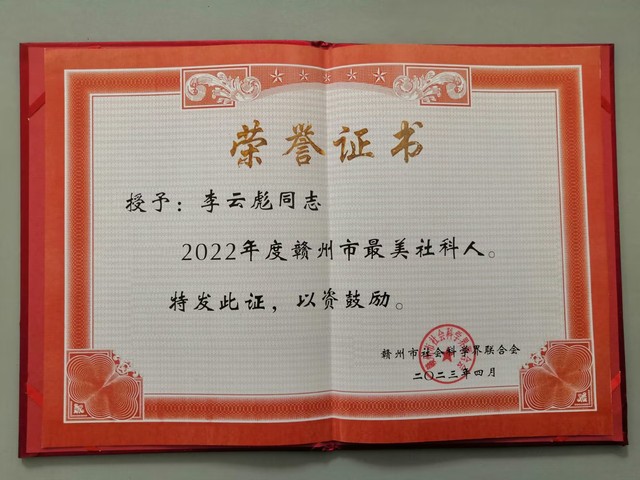 荣誉证书
授予：李云彪同志
2022年度赣州市最美社科人。
特发此证，以资鼓励。
赣州市社会科学界联合会
二〇二三年四月